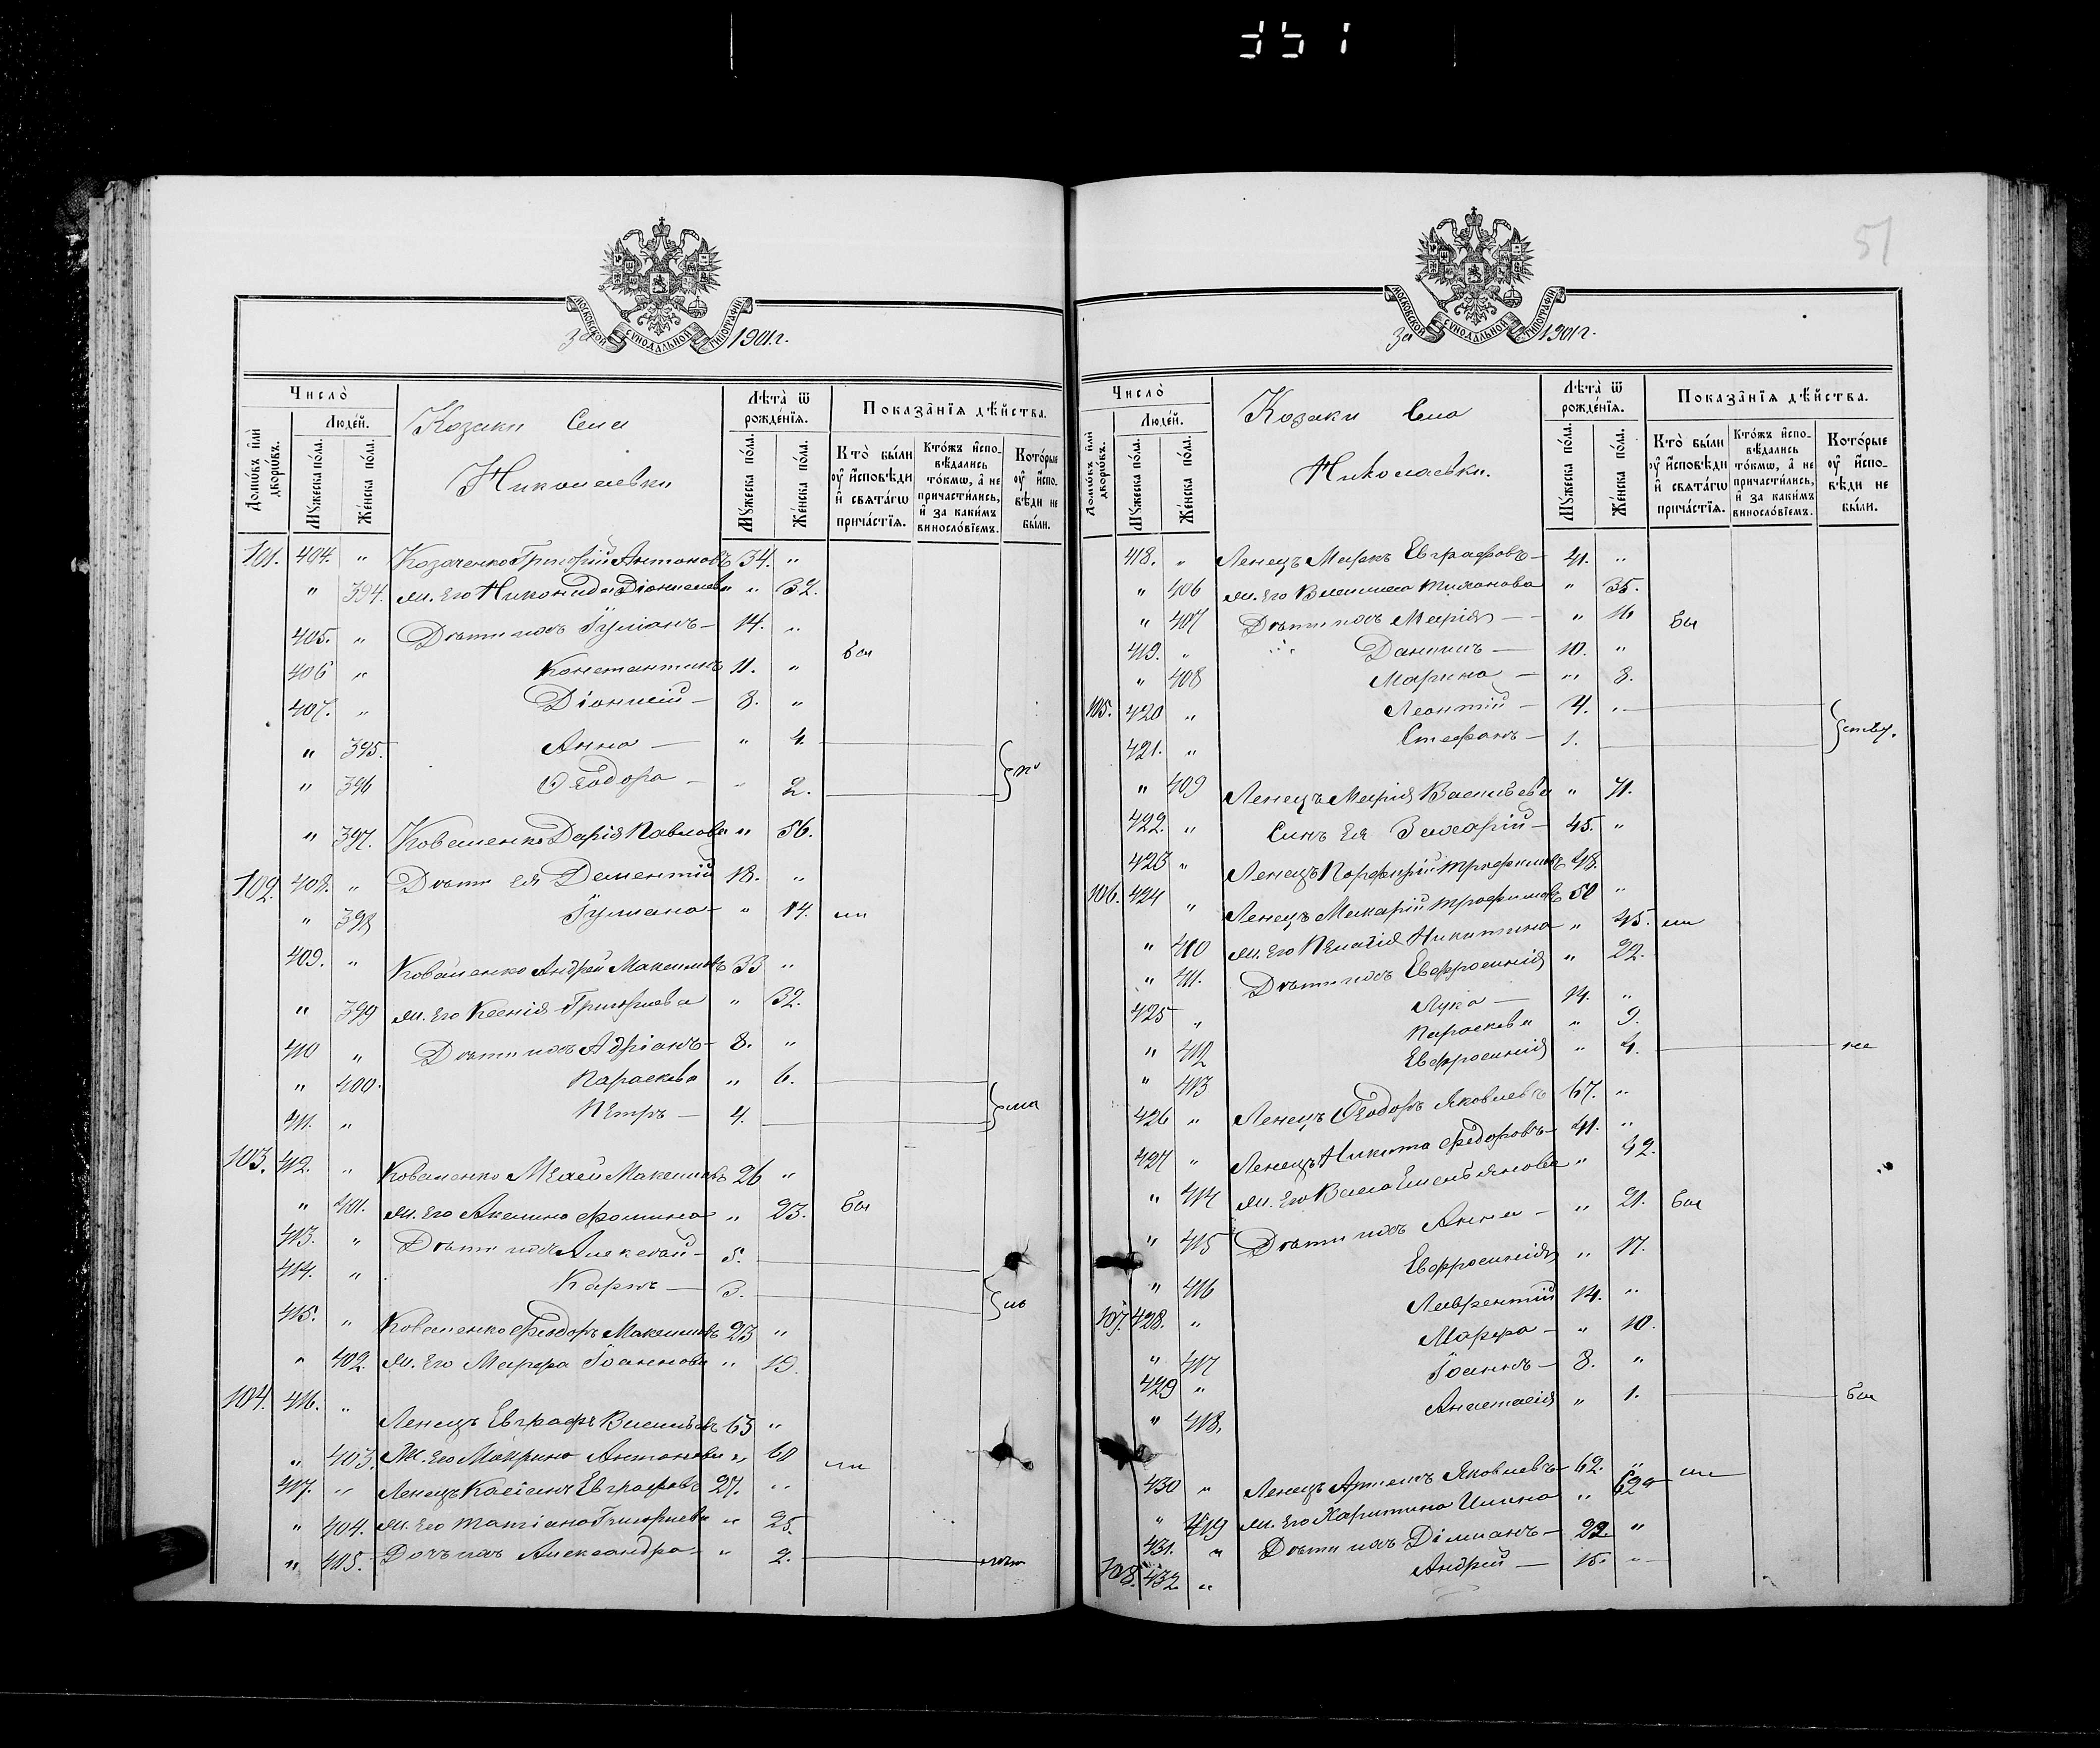 351
за 1901 г.
МОСКОВСКОЙ СѴНОДАЛЬНОЙ ТИПОГРАФІИ
Число̀
Людéй.
Домѡ́въ и҆лѝ дворѡ́въ.
Мꙋ́жеска по́ла.
Же́нска по́ла.
Козаки Села
Николаевки
Лѣта̀ ѿ рожде́нїѧ.
Мꙋ́жеска по́ла.
Же́нска по́ла.
Показа̑нїѧ дѣ́йства.
Кто̀ бы́ли ᲂу҆ и҆́сповѣди и҆ свѧта́гѡ прича́стїѧ.
Кто́жъ и҆спо�вѣ́дались то́кмѡ, а҆ не причасти́лись, и҆ за каки́мъ винословїемъ.
Кото́рые ᲂу҆ и҆́сповѣди не бы́ли.
101. 404. " Козаченко Григорій Антоновъ 34. "
" 394. ж. его Никонида Діонисіева " 32.
405. " Дѣти ихъ Іуліанъ — 14. "
бы
406 " Константинъ 11. "
407. " Діонисій — 8. "
" 395. Анна — " 4.
" 396 Ѳеодора — " 2.
" 397. Коваленко Дарія Павлова " 56.
102. 408. " Дѣти ея Дементій 18. "
" 398 Іуліана — " 14. ли
409. " Коваленко Андрей Максимовъ 33 "
" 399 ж. его Ксенія Григориева " 32.
410 " Дѣти ихъ Адріанъ — 8. "
" 400. Параскева " 6.
411. " Петръ — 4.
103. 412. " Коваленко Моѵсей Максимовъ 26 "
" 401. ж. его Акилина Фомина " 23. бы
413. " Дѣти ихъ Алексѣй — 5.
414. " Карпъ — 3.
415. " Коваленко Ѳеодоръ Максимовъ 23 "
" 402. ж. его Марфа Іоаннова " 19.
104. 416. " Ленецъ Евграфъ Васильевъ 63 "
" 403. ж. его Макрина Антонова " 60 ли
417. " Ленецъ Касіанъ Евграфовъ 27. "
" 404. ж. его Татіана Григориева " 25.
" 405. Дочь ихъ Александра — " 2.
51
за 1901 г.
МОСКОВСКОЙ СѴНОДАЛЬНОЙ ТИПОГРАФІИ
Число̀
Людéй.
Домѡ́въ и҆лѝ дворѡ́въ.
Мꙋ́жеска по́ла.
Же́нска по́ла.
Козаки Села
Николаевки.
Лѣта̀ ѿ рожде́нїѧ.
Мꙋ́жеска по́ла.
Же́нска по́ла.
Показа̑нїѧ дѣ́йства.
Кто̀ бы́ли ᲂу҆ и҆́сповѣди и҆ свѧта́гѡ прича́стїѧ.
Кто́жъ и҆сповѣ́дались то́кмѡ, а҆ не причасти́лись, и҆ за каки́мъ винословїемъ.
Кото́рые ᲂу҆ и҆́сповѣди не бы́ли.
418. " Ленецъ Маркъ Евграфовъ — 41. "
" 406 ж. его Василиса Тихонова " 35.
" 407 Дѣти ихъ Марія — " 16 бы
419. " Даніилъ — 10. "
" 408 Марина — " 8.
105. 420 " Леонтій — 4. "
421. " Стефанъ — 1.
" 409 Ленецъ Марія Васильева " 71.
422. " Сынъ ея Захарій — 45. "
423 " Ленецъ Порфирій Трофимовъ 48.
106. 424 " Ленецъ Макарій Трофимовъ 50 "
" 410 ж. его Пелагія Никитина " 45. ли
" 411. Дѣти ихъ Евфросинія " 22.
425 " Лука — 14. "
" 412 Параскева " 9.
" 413 Евфросинія " 4. не
426 " Ленецъ Ѳеодоръ Яковлевъ 67. "
427 " Ленецъ Никита Федоровъ — 41. "
" 414 ж. его Васса Емельянова " 42.
" 415 Дѣти ихъ Анна — " 21. бы
" 416 Евфросинія " 17.
107. 428. " Лаврентій 14. "
" 417 Марфа — " 10.
429 " Іоаннъ — 8. "
" 418. Анастасія " 1. бы
430 " Ленецъ Артемъ Яковлевъ — 62. " ли
" 419 ж. его Харитина Ильина " 62
431. " Дѣти ихъ Даміанъ — 22. "
108. 432 " Андрей — 15. "